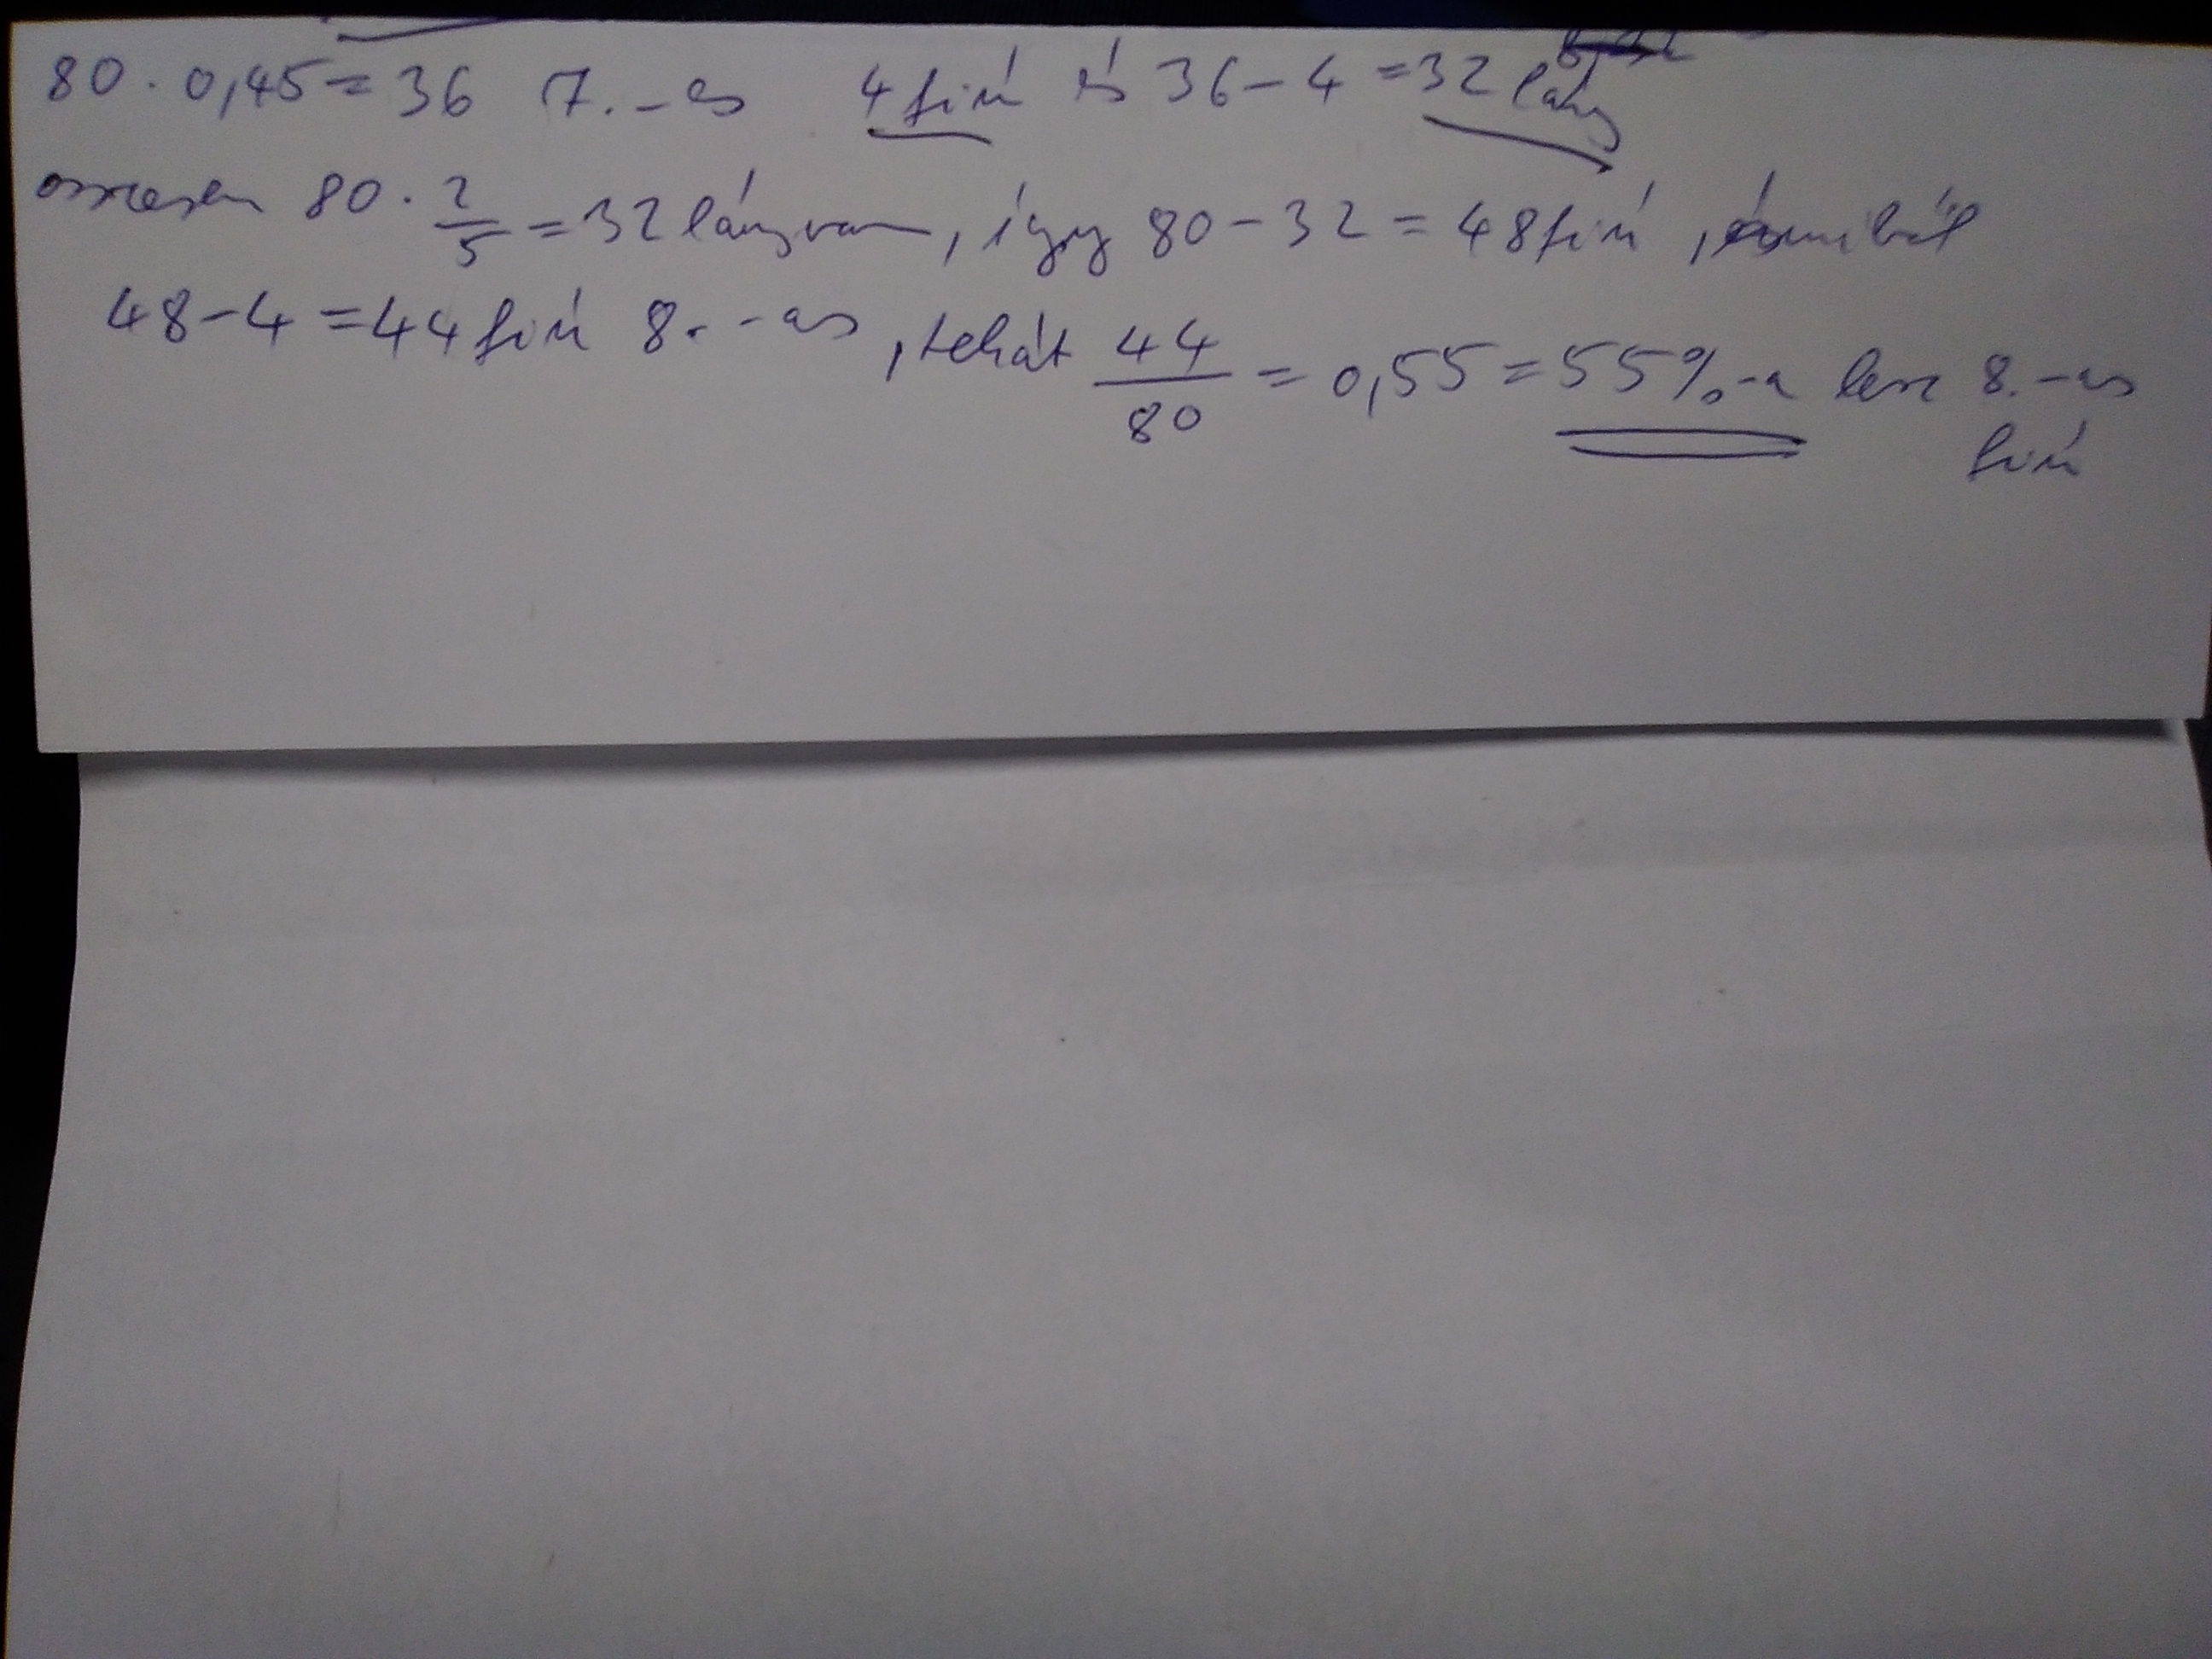 80 · 0,45 = 36 7.-es 4 fiú és 36 - 4 = 32 lány
összesen 80 · 2/5 = 32 lány van, így 80 - 32 = 48 fiú, amiből
48 - 4 = 44 fiú 8.-as, tehát 44/80 = 0,55 = 55%-a lesz 8.-as
fiú